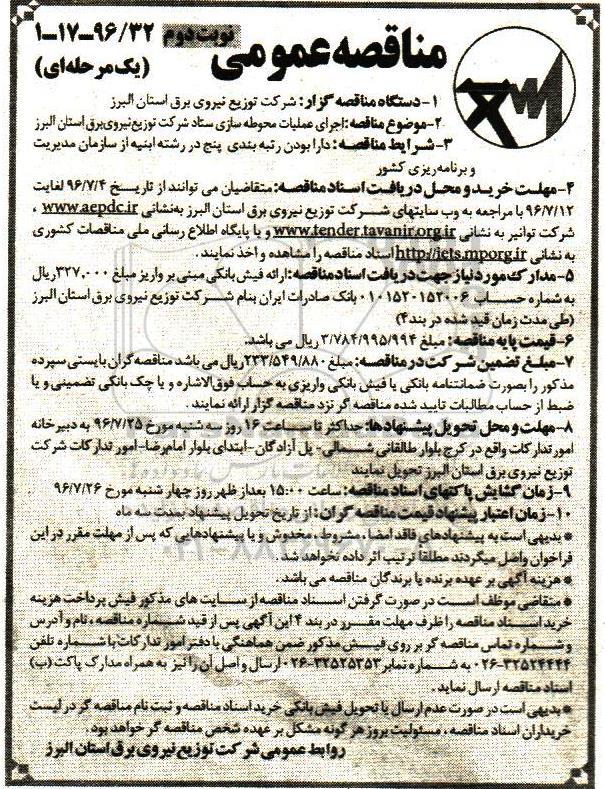 مناقصه عمومی
نوبت دوم ۹۶/۳۲-۱۷-۱
(یک مرحله‌ای)
۱-دستگاه مناقصه گزار: شرکت توزیع نیروی برق استان البرز
۲-موضوع مناقصه: اجرای عملیات محوطه سازی ستاد شرکت توزیع نیروی برق استان البرز
۳-شرایط مناقصه: دارا بودن رتبه بندی پنج در رشته ابنیه از سازمان مدیریت
و برنامه ریزی کشور
۴-مهلت خرید و محل دریافت اسناد مناقصه: متقاضیان می توانند از تاریخ ۹۶/۷/۴ لغایت
۹۶/۷/۱۲ با مراجعه به وب سایتهای شرکت توزیع نیروی برق استان البرز به‌نشانی www.aepdc.ir ،
شرکت توانیر به نشانی www.tender.tavanir.org.ir و یا پایگاه اطلاع رسانی ملی مناقصات کشوری
به نشانی http://iets.mporg.ir اسناد مناقصه را مشاهده و اخذ نمایند.
۵-مدارک مورد نیاز جهت دریافت اسناد مناقصه: ارائه فیش بانکی مبنی بر واریز مبلغ ۳۲۷,۰۰۰ ریال
به شماره حساب ۰۱۰۱۵۲۰۱۵۲۰۰۶ بانک صادرات ایران بنام شرکت توزیع نیروی برق استان البرز
(طی مدت زمان قید شده در بند۴)
۶-قیمت پایه مناقصه: مبلغ ۳/۷۸۴/۹۹۵/۹۹۴ ریال می باشد.
۷-مبلغ تضمین شرکت در مناقصه: مبلغ ۲۲۳/۵۴۹/۸۸۰ ریال می باشد مناقصه گران بایستی سپرده
مذکور را بصورت ضمانتنامه بانکی یا فیش بانکی واریزی به حساب فوق‌الاشاره و یا چک بانکی تضمینی و یا
ضبط از حساب مطالبات تایید شده مناقصه گر نزد مناقصه گزار ارائه نمایند.
۸-مهلت و محل تحویل پیشنهادها: حداکثر تا ساعت ۱۶ روز سه شنبه مورخ ۹۶/۷/۲۵ به دبیرخانه
امور تدارکات واقع در کرج بلوار طالقانی شمالی- پل آزادگان-ابتدای بلوار امام‌رضا-امور تدارکات شرکت
توزیع نیروی برق استان البرز تحویل نمایند
۹-زمان گشایش پاکتهای اسناد مناقصه: ساعت ۱۵:۰۰ بعداز ظهر روز چهار شنبه مورخ ۹۶/۷/۲۶
۱۰-زمان اعتبار پیشنهاد قیمت مناقصه گران: از تاریخ تحویل پیشنهاد بمدت سه ماه
* بدیهی است به پیشنهادهای فاقد امضا، مشروط، مخدوش و یا پیشنهادهایی که پس از مهلت مقرر در این
فراخوان واصل میگردند مطلقا ترتیب اثر داده نخواهد شد.
* هزینه آگهی بر عهده برنده یا برندگان مناقصه می باشد.
* متقاضی موظف است در صورت گرفتن اسناد مناقصه از سایت های مذکور فیش پرداخت هزینه
خرید اسناد مناقصه را ظرف مهلت مقرر در بند ۴ این آگهی پس از قید شماره مناقصه ، نام و آدرس
و شماره تماس مناقصه گر بر روی فیش مذکور ضمن هماهنگی با دفتر امور تدارکات با شماره تلفن
۰۲۶-۳۲۵۲۴۴۴۴ به شماره نمابر ۰۲۶-۳۲۵۲۵۳۵۳ ارسال و اصل آن را نیز به همراه مدارک پاکت (ب)
اسناد مناقصه ارسال نماید.
* بدیهی است در صورت عدم ارسال یا تحویل فیش بانکی خرید اسناد مناقصه و ثبت نام مناقصه گر در لیست
خریداران اسناد مناقصه ، مسئولیت بروز هر گونه مشکل بر عهده شخص مناقصه گر خواهد بود.
روابط عمومی شرکت توزیع نیروی برق استان البرز